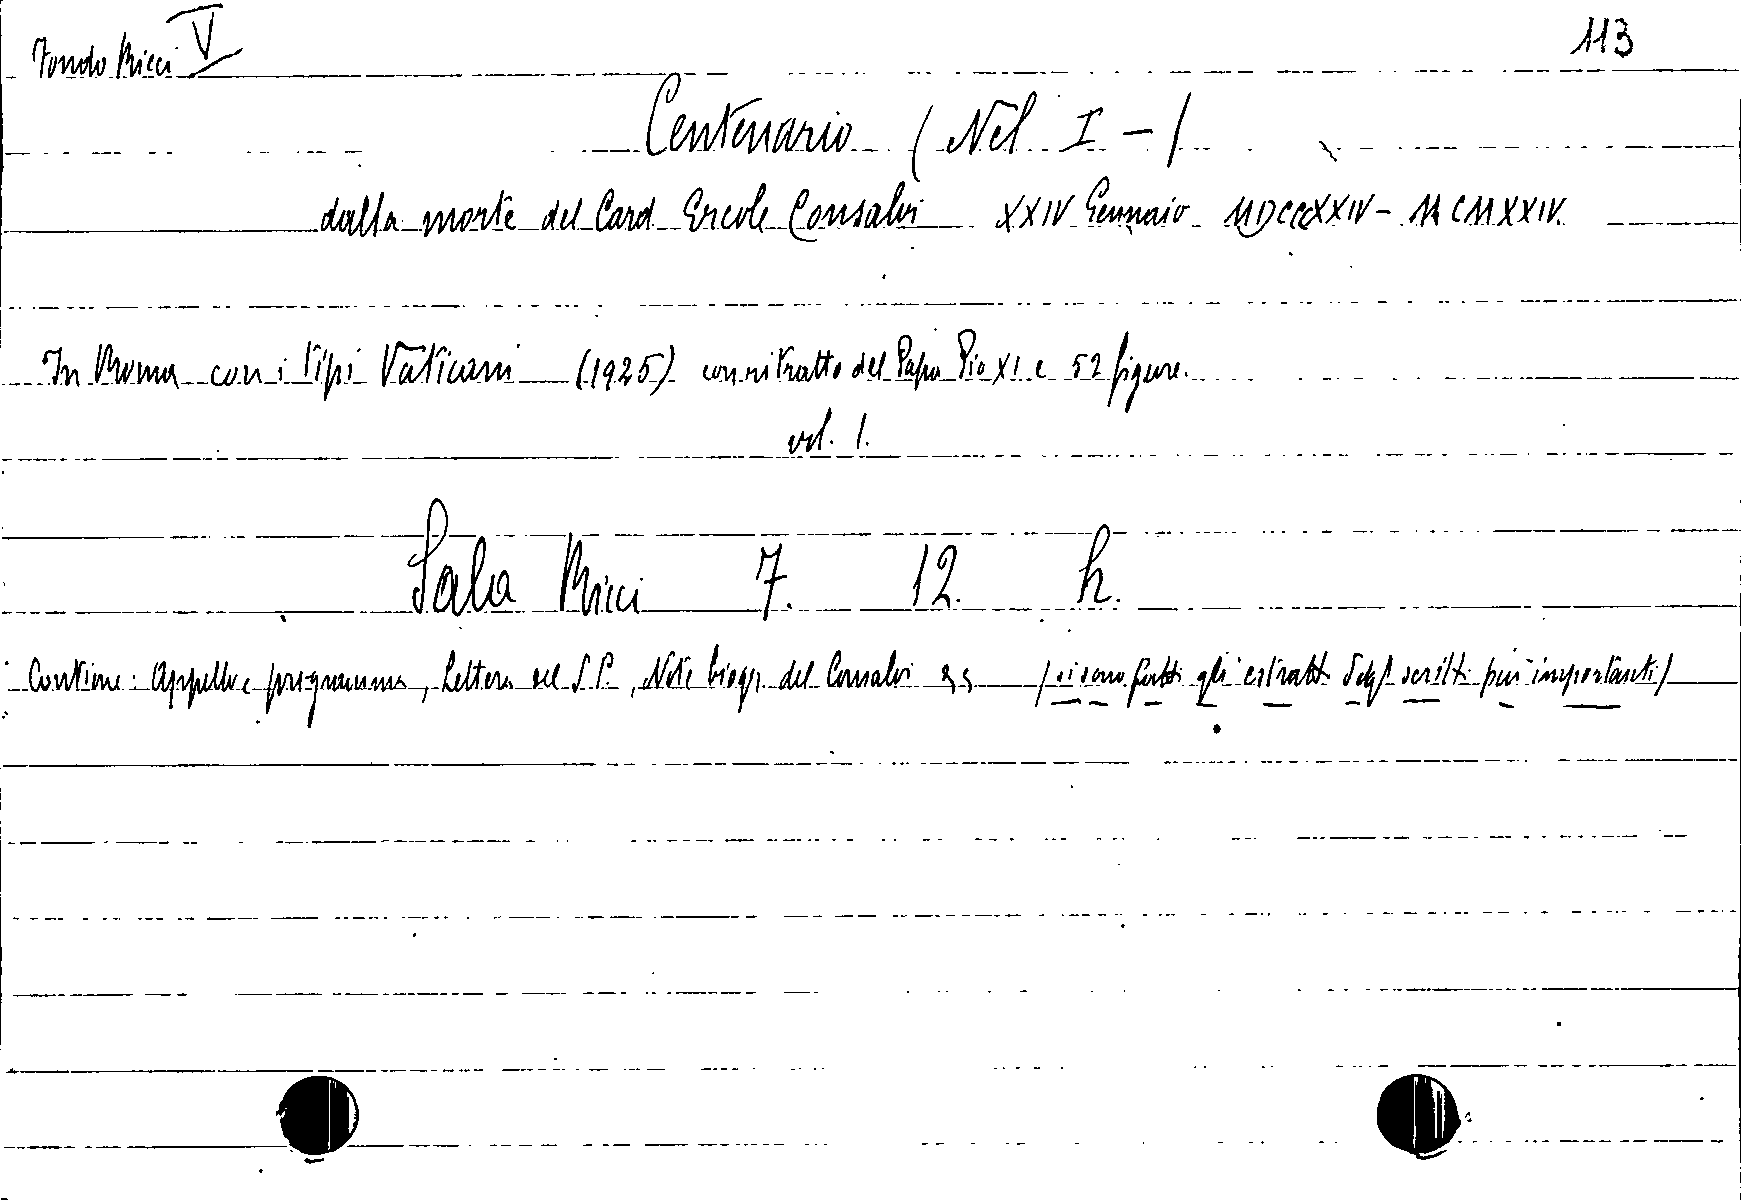 Fondo Ricci V
113
Centenario (Nel I - )
dalla morte del Card Ercole Consalvi XXIV Gennaio MDCCCXXIV - MCMXXIV.
In Roma con i Tipi Vaticani (1925) con ritratto del Papa Pio XI e 52 figure.
vol. 1.
Sala Ricci 7. 12. h.
Contiene: Appello e programma, Lettera del S.P., Note biogr. del Consalvi (si sono fatti gli estratti scritti più importanti)